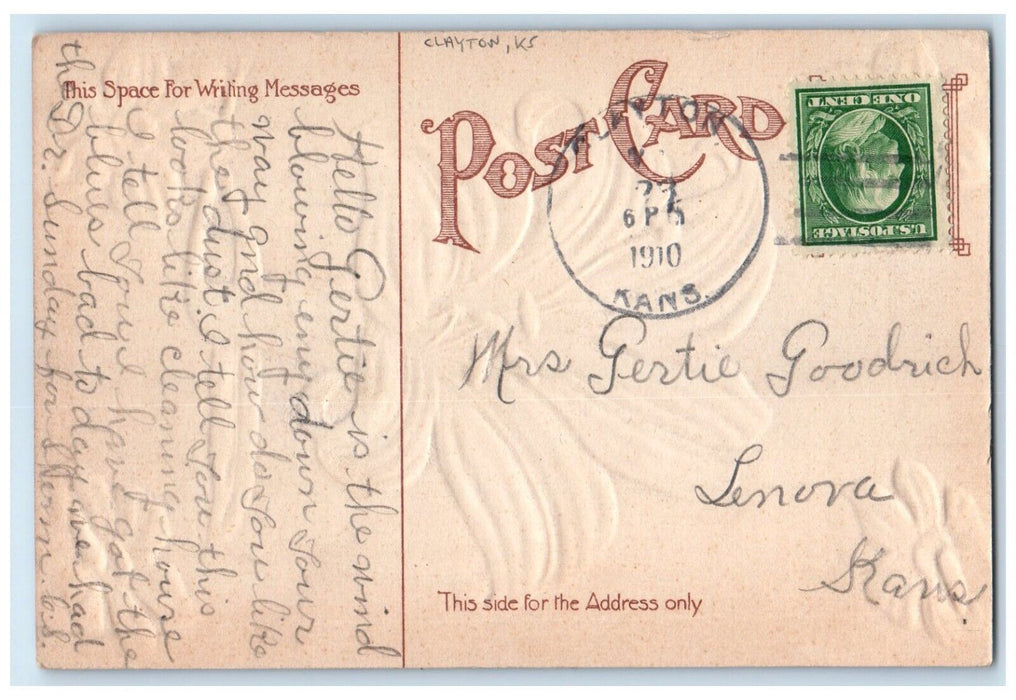 CLAYTON, KS
This Space For Writing Messages
POST CARD
CLAYTON
22
6 P
1910
KANS.
U.S. POSTAGE
ONE CENT
Hello Gertie is the wind
blowing eny down your
way and how do you like
the dust. I tell you this
looks like cleaning house
I tell you I have got the
blues bad to day we had
the Dr. Sunday for
Mrs Gertie Goodrich
Lenora
Kans
This side for the Address only